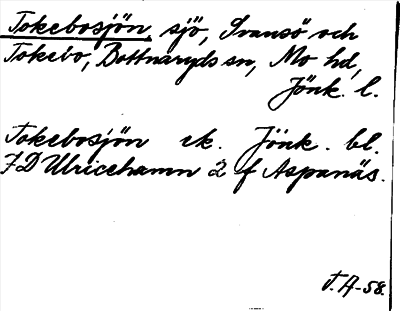 Tokebosjön, sjö, Svansö och
Tokebo, Bottnaryds sn, Mo hd,
Jönk. l.
Tokebosjön ek. Jönk. bl.
7D Ulricehamn 2 f Aspanäs.
T. A-58.